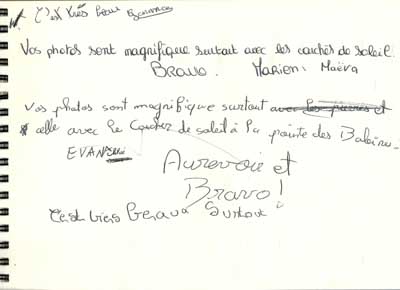 C'est très beau
Vos photos sont magnifique surtout avec les couchés de soleil.
BRAVO. MARIEN. Maëva
Vos photos sont magnifique surtout avec les pierres et
celle avec le coucher de soleil à la pointe des Baleines
EVAN
Aurevoir et
Bravo!
C'est très beau surtout